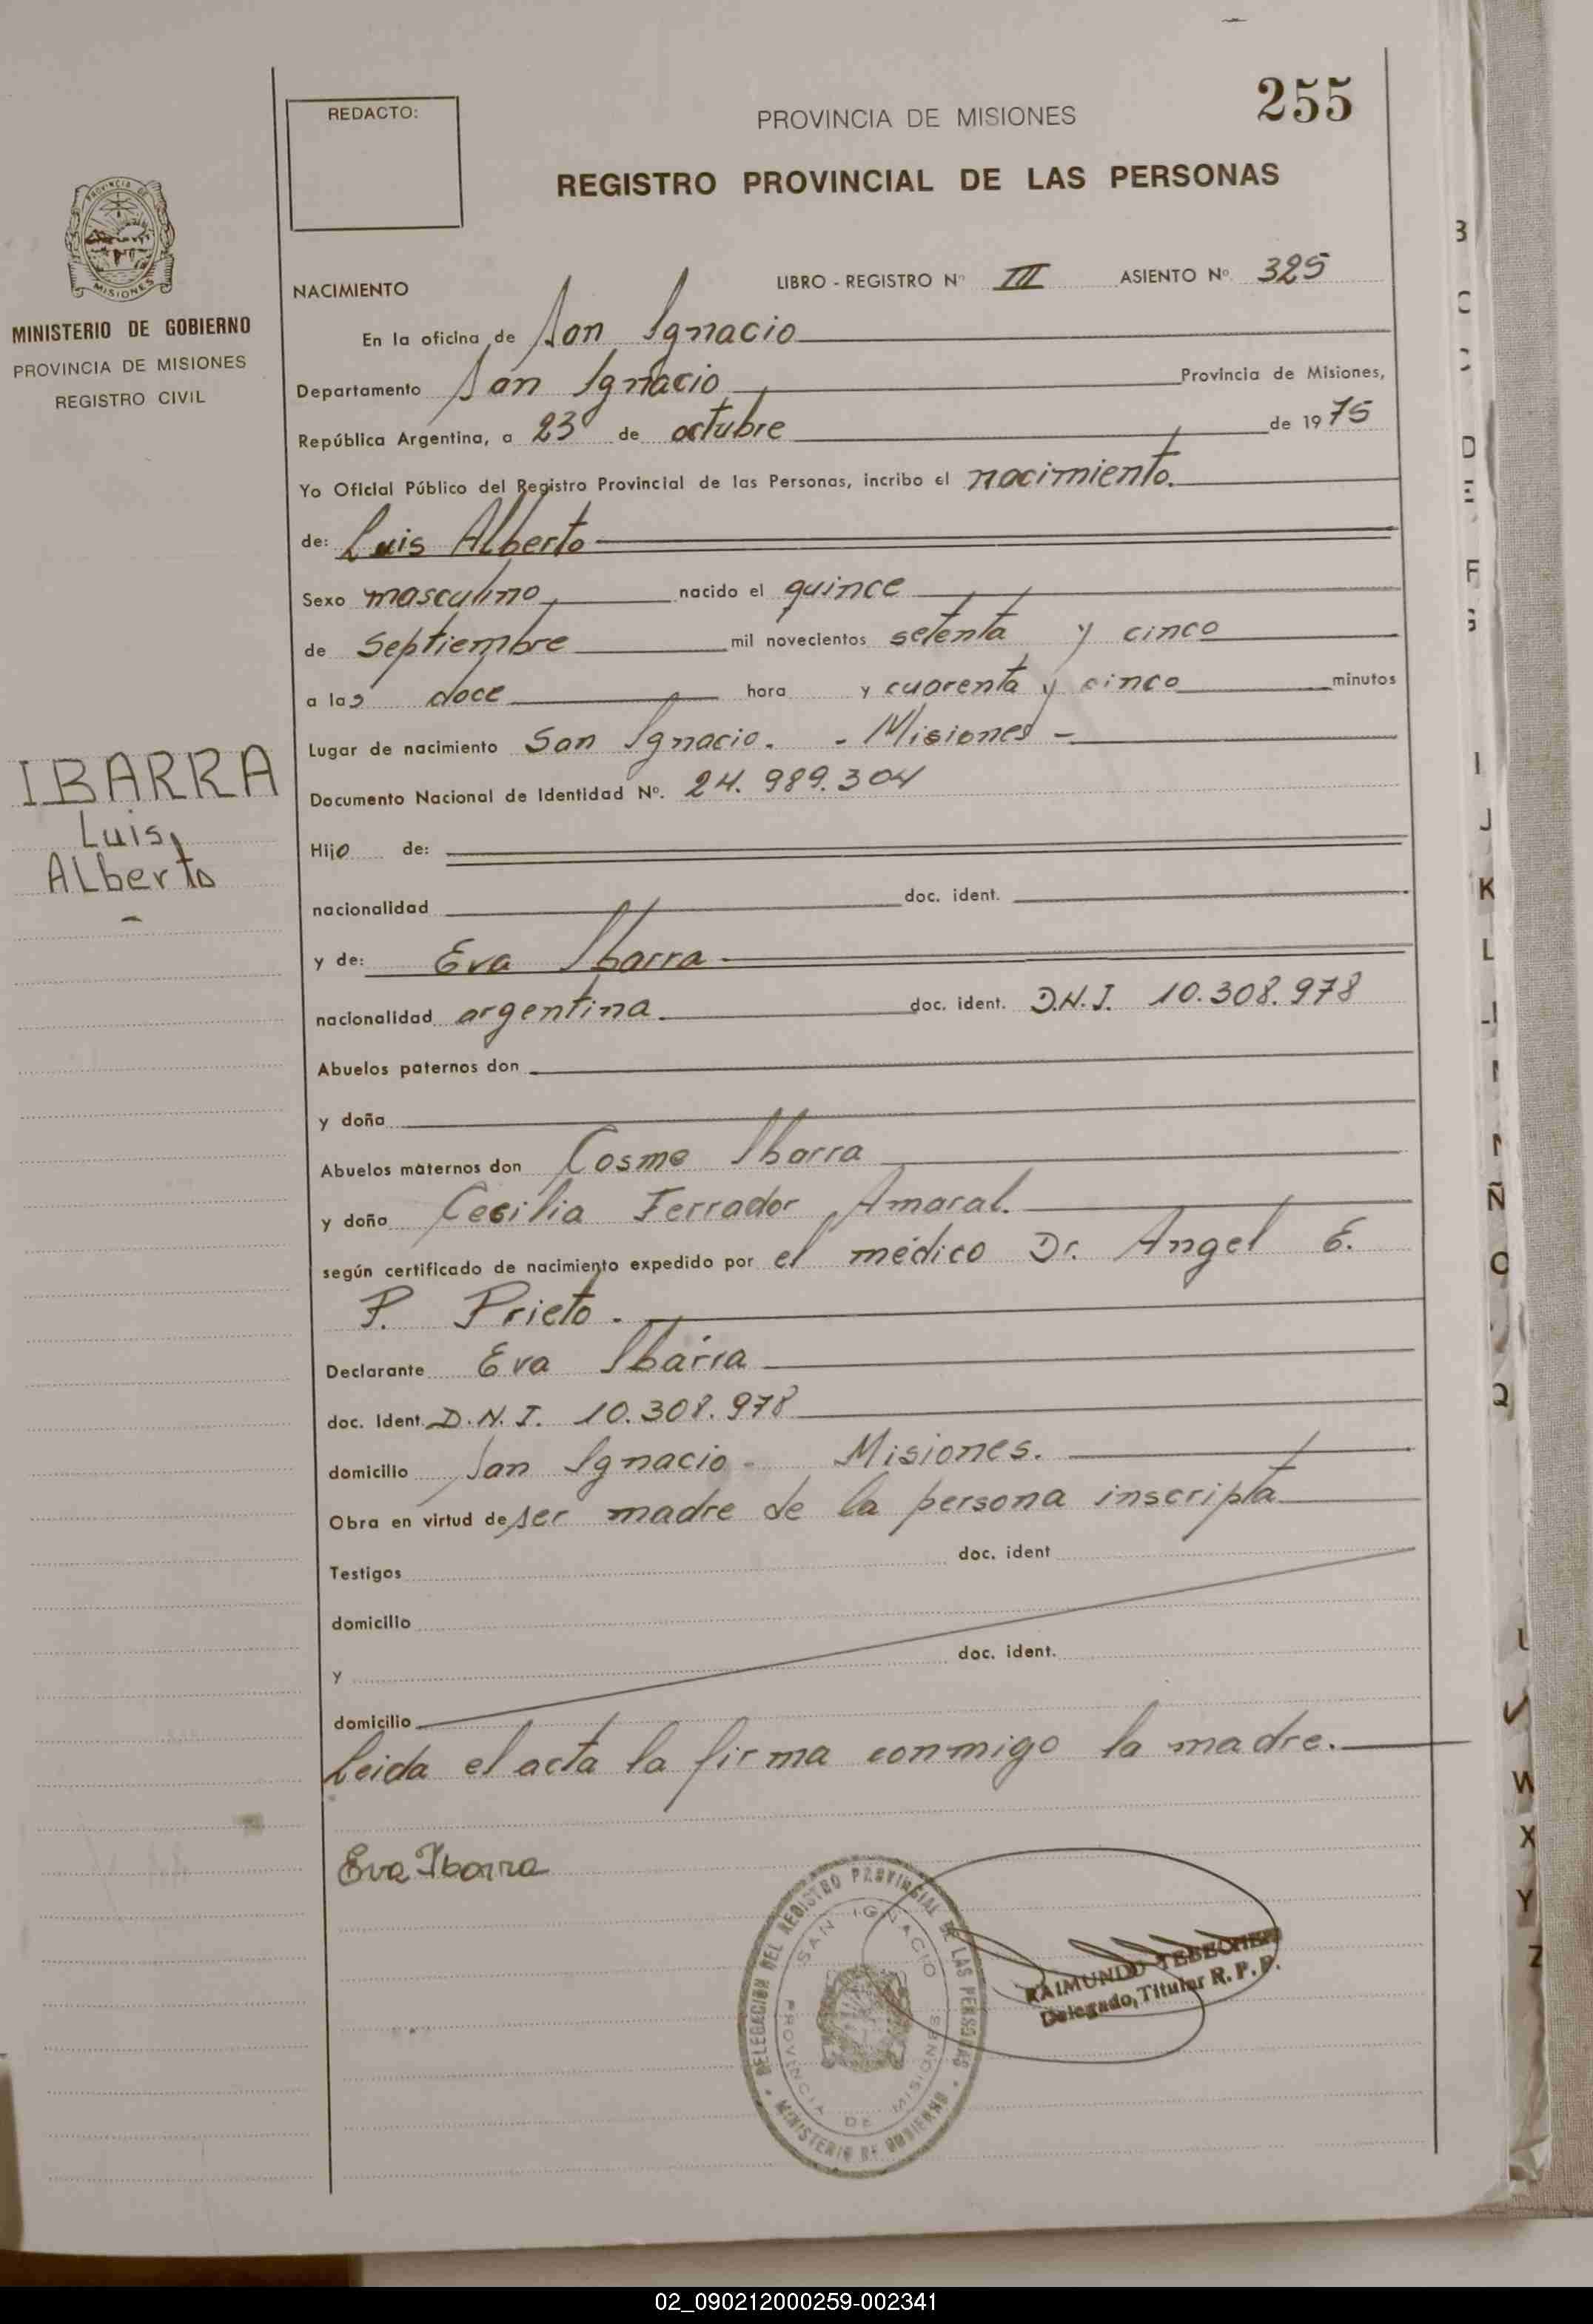 255
REDACTO:
PROVINCIA DE MISIONES
REGISTRO PROVINCIAL DE LAS PERSONAS
MISIONES
MINISTERIO DE GOBIERNO
PROVINCIA DE MISIONES
REGISTRO CIVIL
IBARRA
Luis,
ALberto
NACIMIENTO LIBRO - REGISTRO Nº III ASIENTO Nº 325
En la oficina de San Ignacio
Departamento San Ignacio Provincia de Misiones,
República Argentina, a 23 de octubre de 1975
Yo Oficial Público del Registro Provincial de las Personas, incribo el nacimiento.
de: Luis Alberto
Sexo masculino nacido el quince
de Septiembre mil novecientos setenta y cinco
a las doce hora y cuarenta y cinco minutos
Lugar de nacimiento San Ignacio. - Misiones -
Documento Nacional de Identidad Nº. 24.989.304
Hijo de:
nacionalidad doc. ident.
y de: Eva Ibarra
nacionalidad argentina doc. ident. D.N.I. 10.308.978
Abuelos paternos don
y doña
Abuelos maternos don Cosme Ibarra
y doña Cecilia Ferrador Amaral.
según certificado de nacimiento expedido por el médico Dr. Angel E.
P. Prieto.
Declarante Eva Ibarra
doc. Ident. D.N.I. 10.308.978
domicilio San Ignacio - Misiones.
Obra en virtud de ser madre de la persona inscripta
Testigos doc. ident
domicilio
y doc. ident.
domicilio
Leida el acta la firma conmigo la madre.
Eva Ibarra
DELEGACION DEL REGISTRO PROVINCIAL DE LAS PERSONAS
SAN IGNACIO
PROVINCIA DE MISIONES
MINISTERIO DE GOBIERNO
RAIMUNDO
Delegado, Titular R. P. P.
B
C
D
E
F
G
I
J
K
L
Ñ
O
Q
W
X
Y
Z
02_090212000259-002341